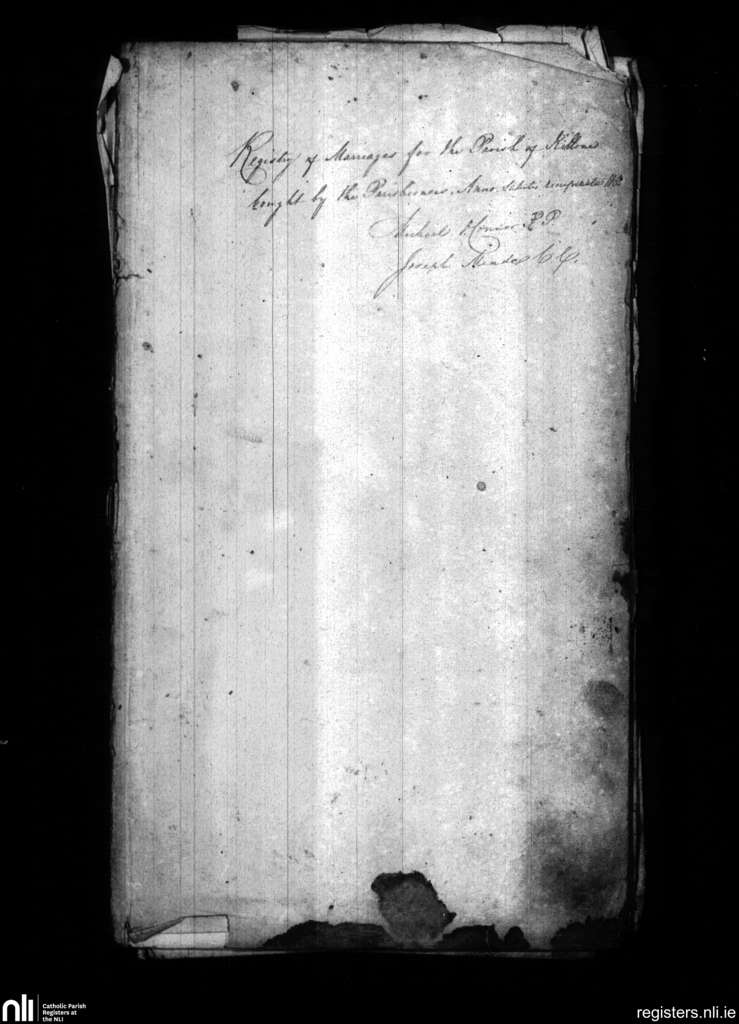 Registry of Marriages for the Parish of
bought by the Parishioners, Anno Salutis
Michael P.P.
Joseph C.C.
nli
Catholic Parish
Registers at
the NLI
registers.nli.ie